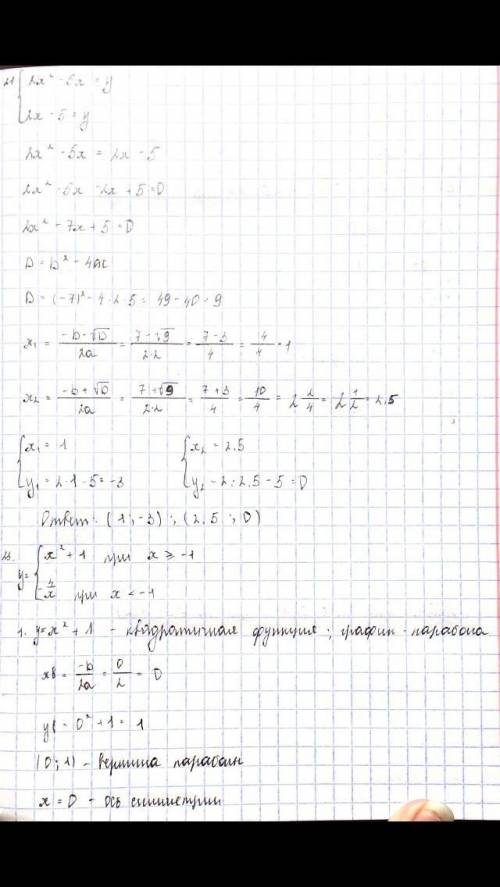 21 { 2x² - 5x = y
2x - 5 = y
2x² - 5x = 2x - 5
2x² - 5x - 2x + 5 = 0
2x² - 7x + 5 = 0
D = b² - 4ac
D = (-7)² - 4·2·5 = 49 - 40 = 9
x₁ = (-b - √D)/2a = (7 - √9)/(2·2) = (7 - 3)/4 = 4/4 = 1
x₂ = (-b + √D)/2a = (7 + √9)/(2·2) = (7 + 3)/4 = 10/4 = 2 2/4 = 2 1/2 = 2,5
{ x₁ = 1 { x₂ = 2,5
y₁ = 2·1 - 5 = -3 y₂ = 2·2,5 - 5 = 0
Ответ: (1; -3); (2,5; 0)
y = { x² + 1 при x ≥ -1
-4/x при x < -1
1. y = x² + 1 - квадратичная функция; график - парабола
xв = -b/2a = 0/2 = 0
yв = 0² + 1 = 1
(0; 1) - вершина параболы
x = 0 - ось симметрии